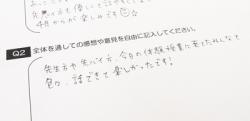 先生も優しくて話しやすく
4月からが楽しみです
Q2 全体を通しての感想や意見を自由に記入してください。
先生方や先パイ方、今日の体験授業に来てたみんなで
色々話できて楽しかったです!